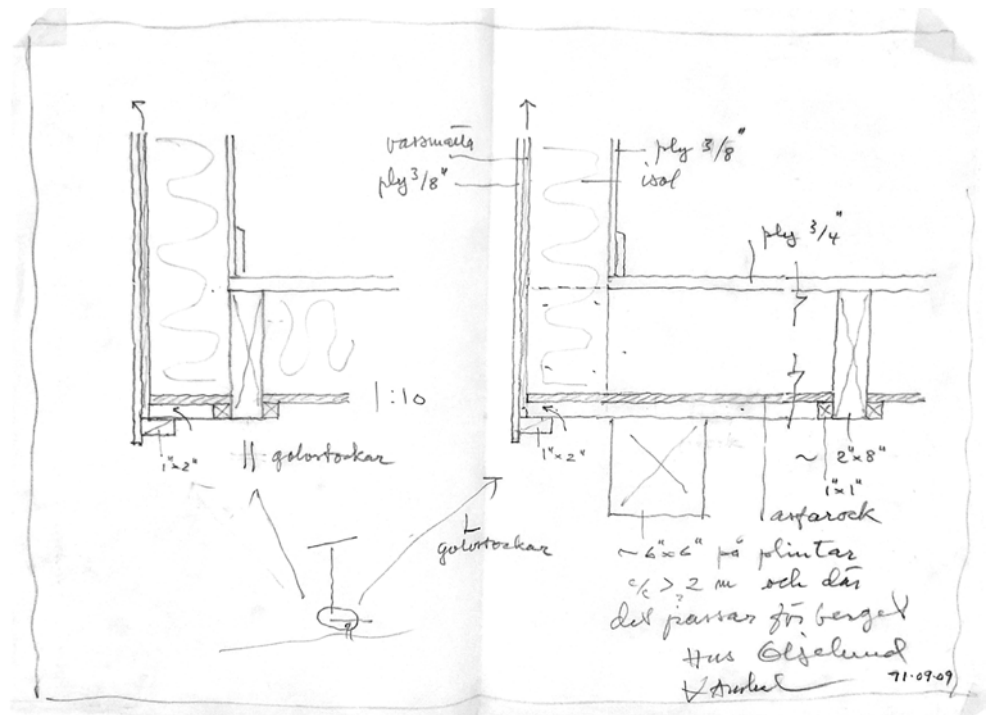 vassmatta
ply 3/8"
ply 3/8"
isol
ply 3/4"
1:10
1"x2"
|| golvstockar
1"x2"
~ 2"x8"
1"x1"
asfarock
⊥
golvstockar
~6"x6" på plintar
c/c >? 2 m och där
det passar för berget
Hus
91-09-09